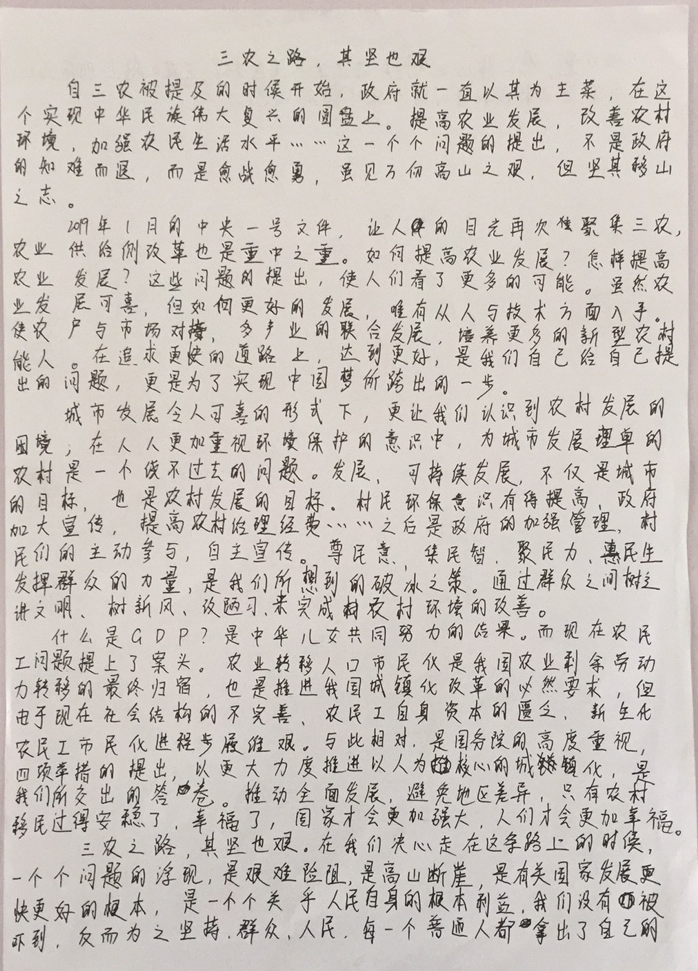 三农之路，其坚也艰
自三农被提及的时候开始，政府就一直以其为主菜，在这
个实现中华民族伟大复兴的圆盘上。提高农业发展，改善农村
环境，加强农民生活水平……这一个个问题的提出，不是政府
的知难而退，而是愈战愈勇，虽见万仞高山之艰，但坚其移山
之志。
2019年1月的中央一号文件，让人们的目光再次聚集三农，
农业供给侧改革也是重中之重。如何提高农业发展？怎样提高
农业发展？这些问题的提出，使人们看了更多的可能。虽然农
业发展可喜，但如何更好的发展，唯有从人与技术方面入手。
使农户与市场对接，多产业的联合发展，培养更多的新型农村
能人。在追求更快的道路上，达到更好，是我们自己给自己提
出的问题，更是为了实现中国梦所跨出的一步。
城市发展令人可喜的形式下，更让我们认识到农村发展的
困境；在人人更加重视环境保护的意识中，为城市发展埋单的
农村是一个绕不过去的问题。发展，可持续发展，不仅是城市
的目标，也是农村发展的目标。村民环保意识有待提高，政府
加大宣传，提高农村治理经费……之后是政府的加强管理，村
民们的主动参与，自主宣传。尊民意，集民智，聚民力，惠民生
发挥群众的力量，是我们所想到的破冰之策。通过群众之间树立
讲文明、树新风、改陋习，来完成农村环境的改善。
什么是GDP？是中华儿女共同努力的结果。而现在农民
工问题提上了案头。农业转移人口市民化是我国农业剩余劳动
力转移的最终归宿，也是推进我国城镇化改革的必然要求，但
由于现在社会结构的不完善、农民工自身资本的匮乏，新生代
农民工市民化进程步履维艰。与此相对，是国务院的高度重视，
四项举措的提出，以更大力度推进以人为核心的城镇化，是
我们所交出的答卷。推动全面发展，避免地区差异，只有农村
移民过得安稳了，幸福了，国家才会更加强大，人们才会更加幸福。
三农之路，其坚也艰。在我们决心走在这条路上的时候，
一个个问题的浮现，是艰难险阻，是高山断崖，是有关国家发展更
快更好的根本，是一个个关乎人民自身的根本利益，我们没有被
吓到，反而为之坚持，群众、人民，每一个普通人都拿出了自己的